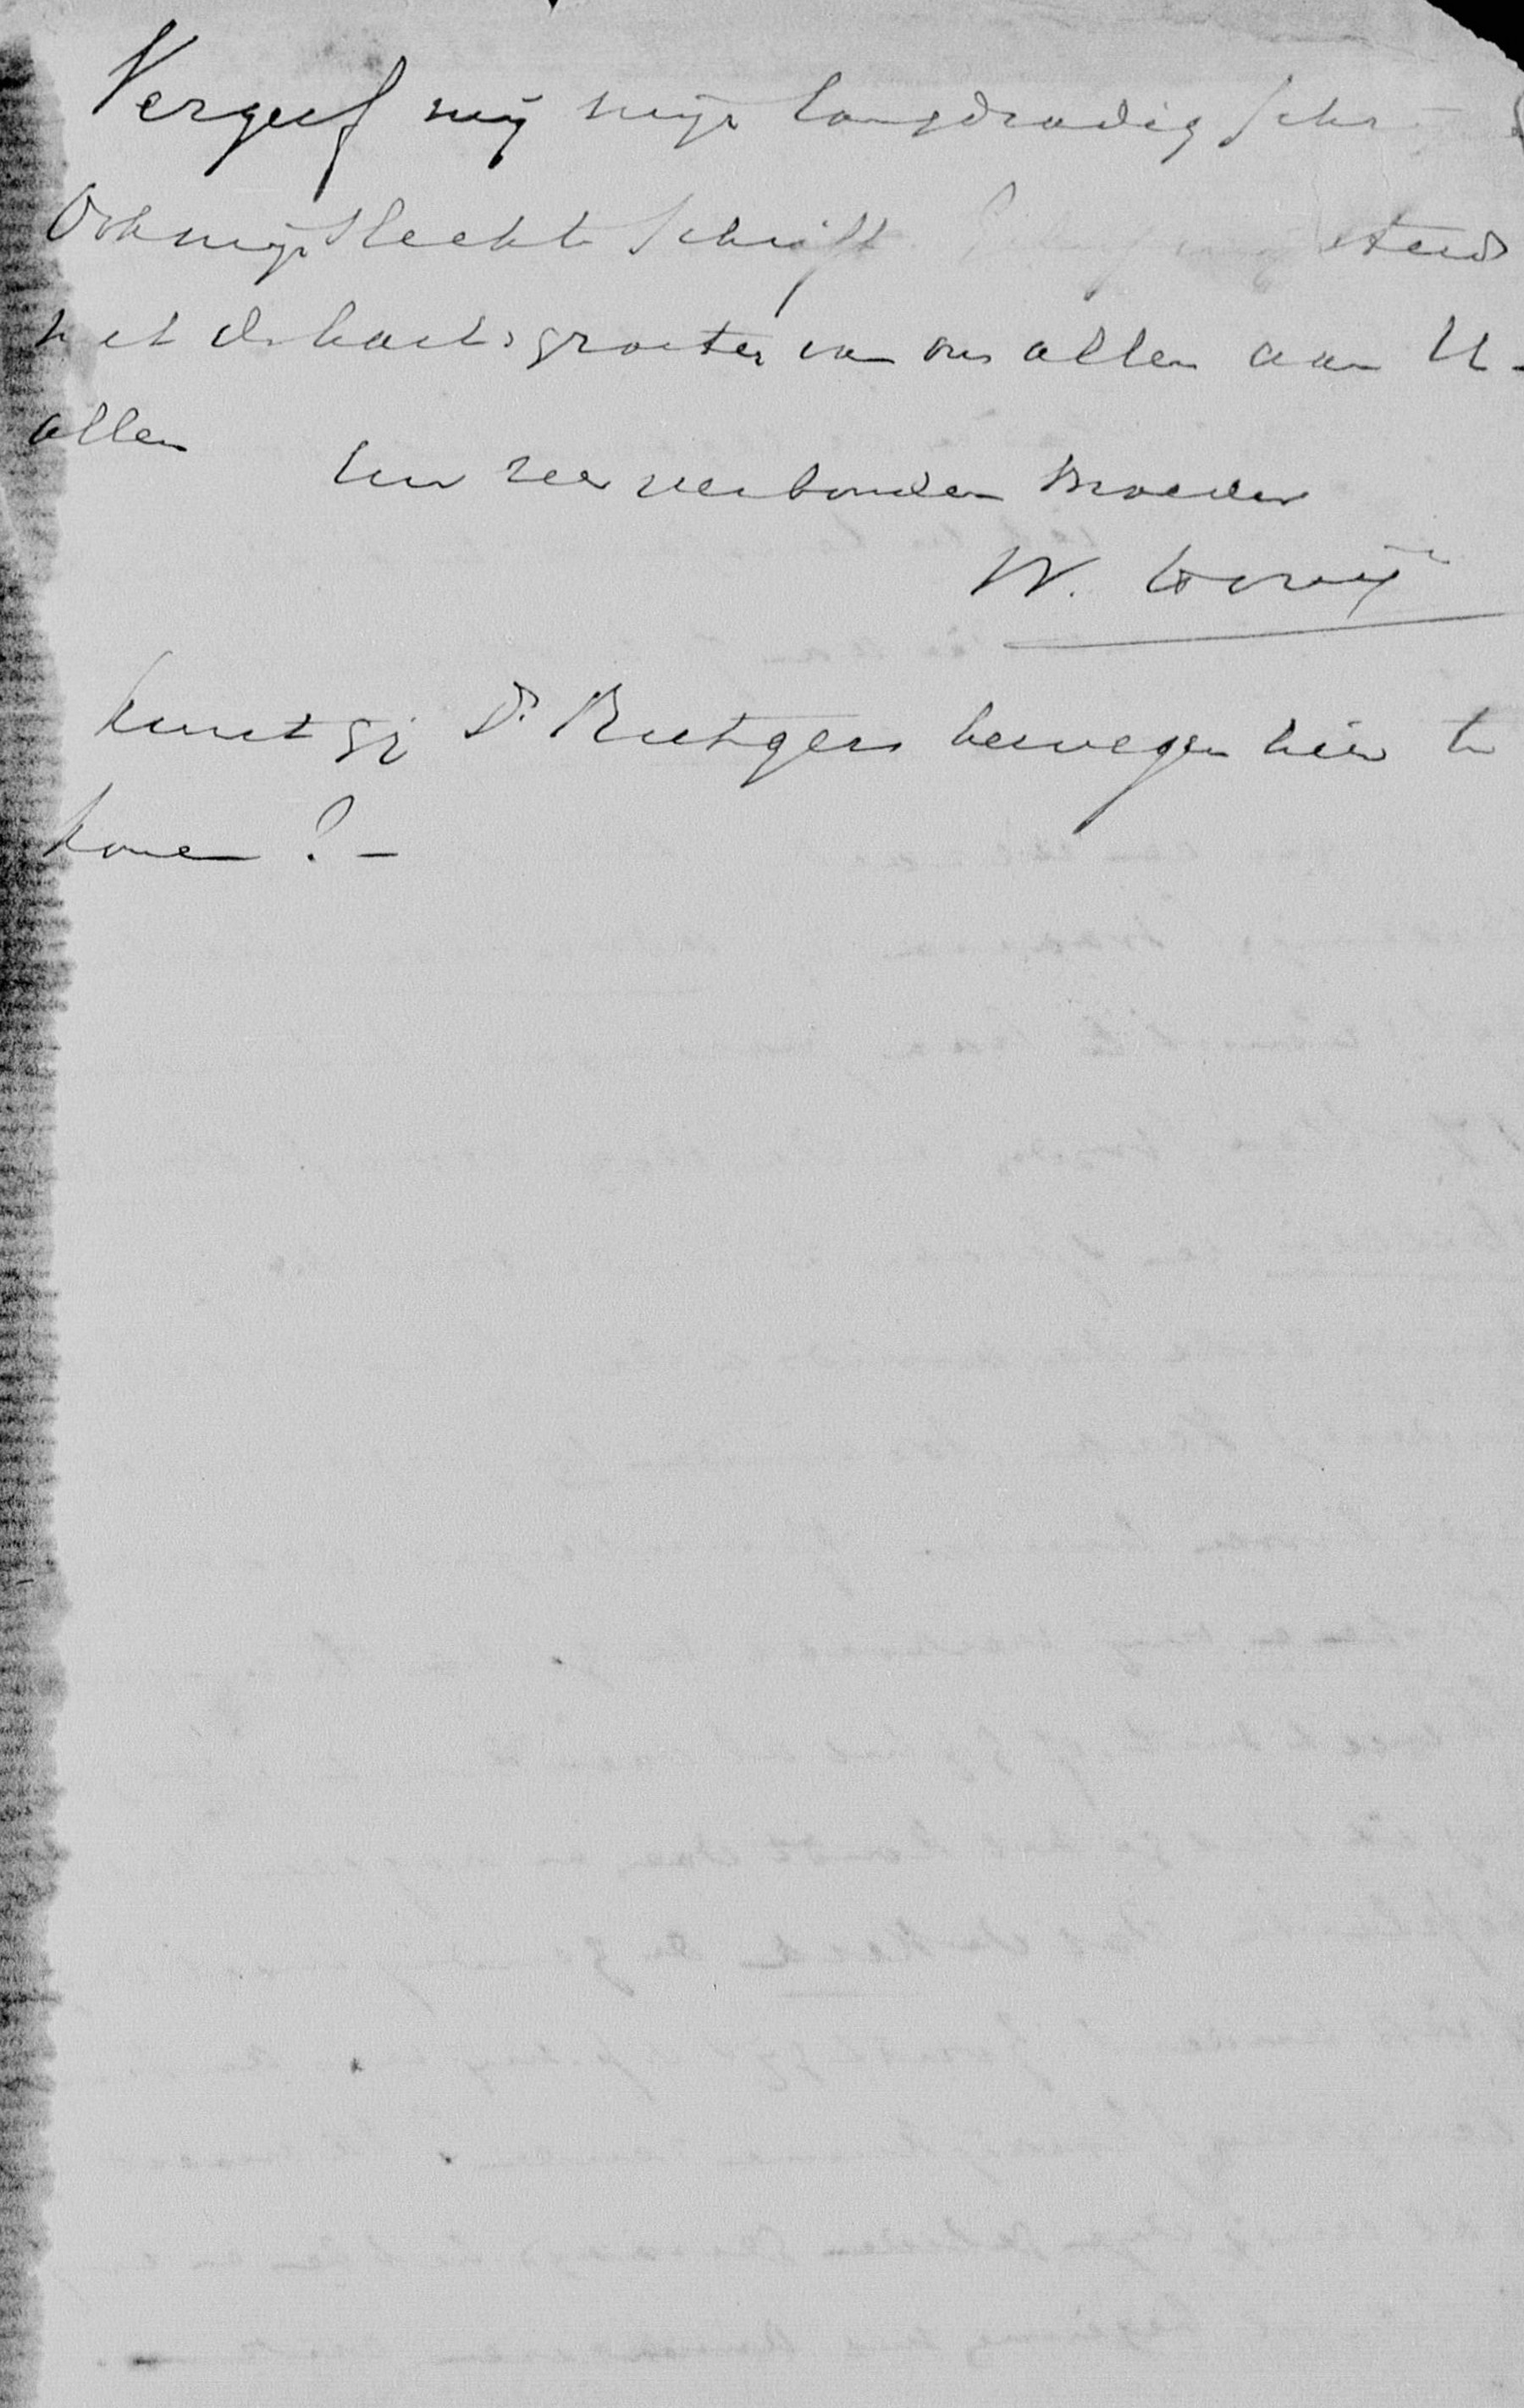 Vergeef mij mijn langdradig
Ook mijn slecht schrift steeds
met de hartsgroeten van ons allen aan U-
allen
Uw zeer verbonden Broeder
W.
Kunt gij Dr Rutgers bewegen hier te
komen? -